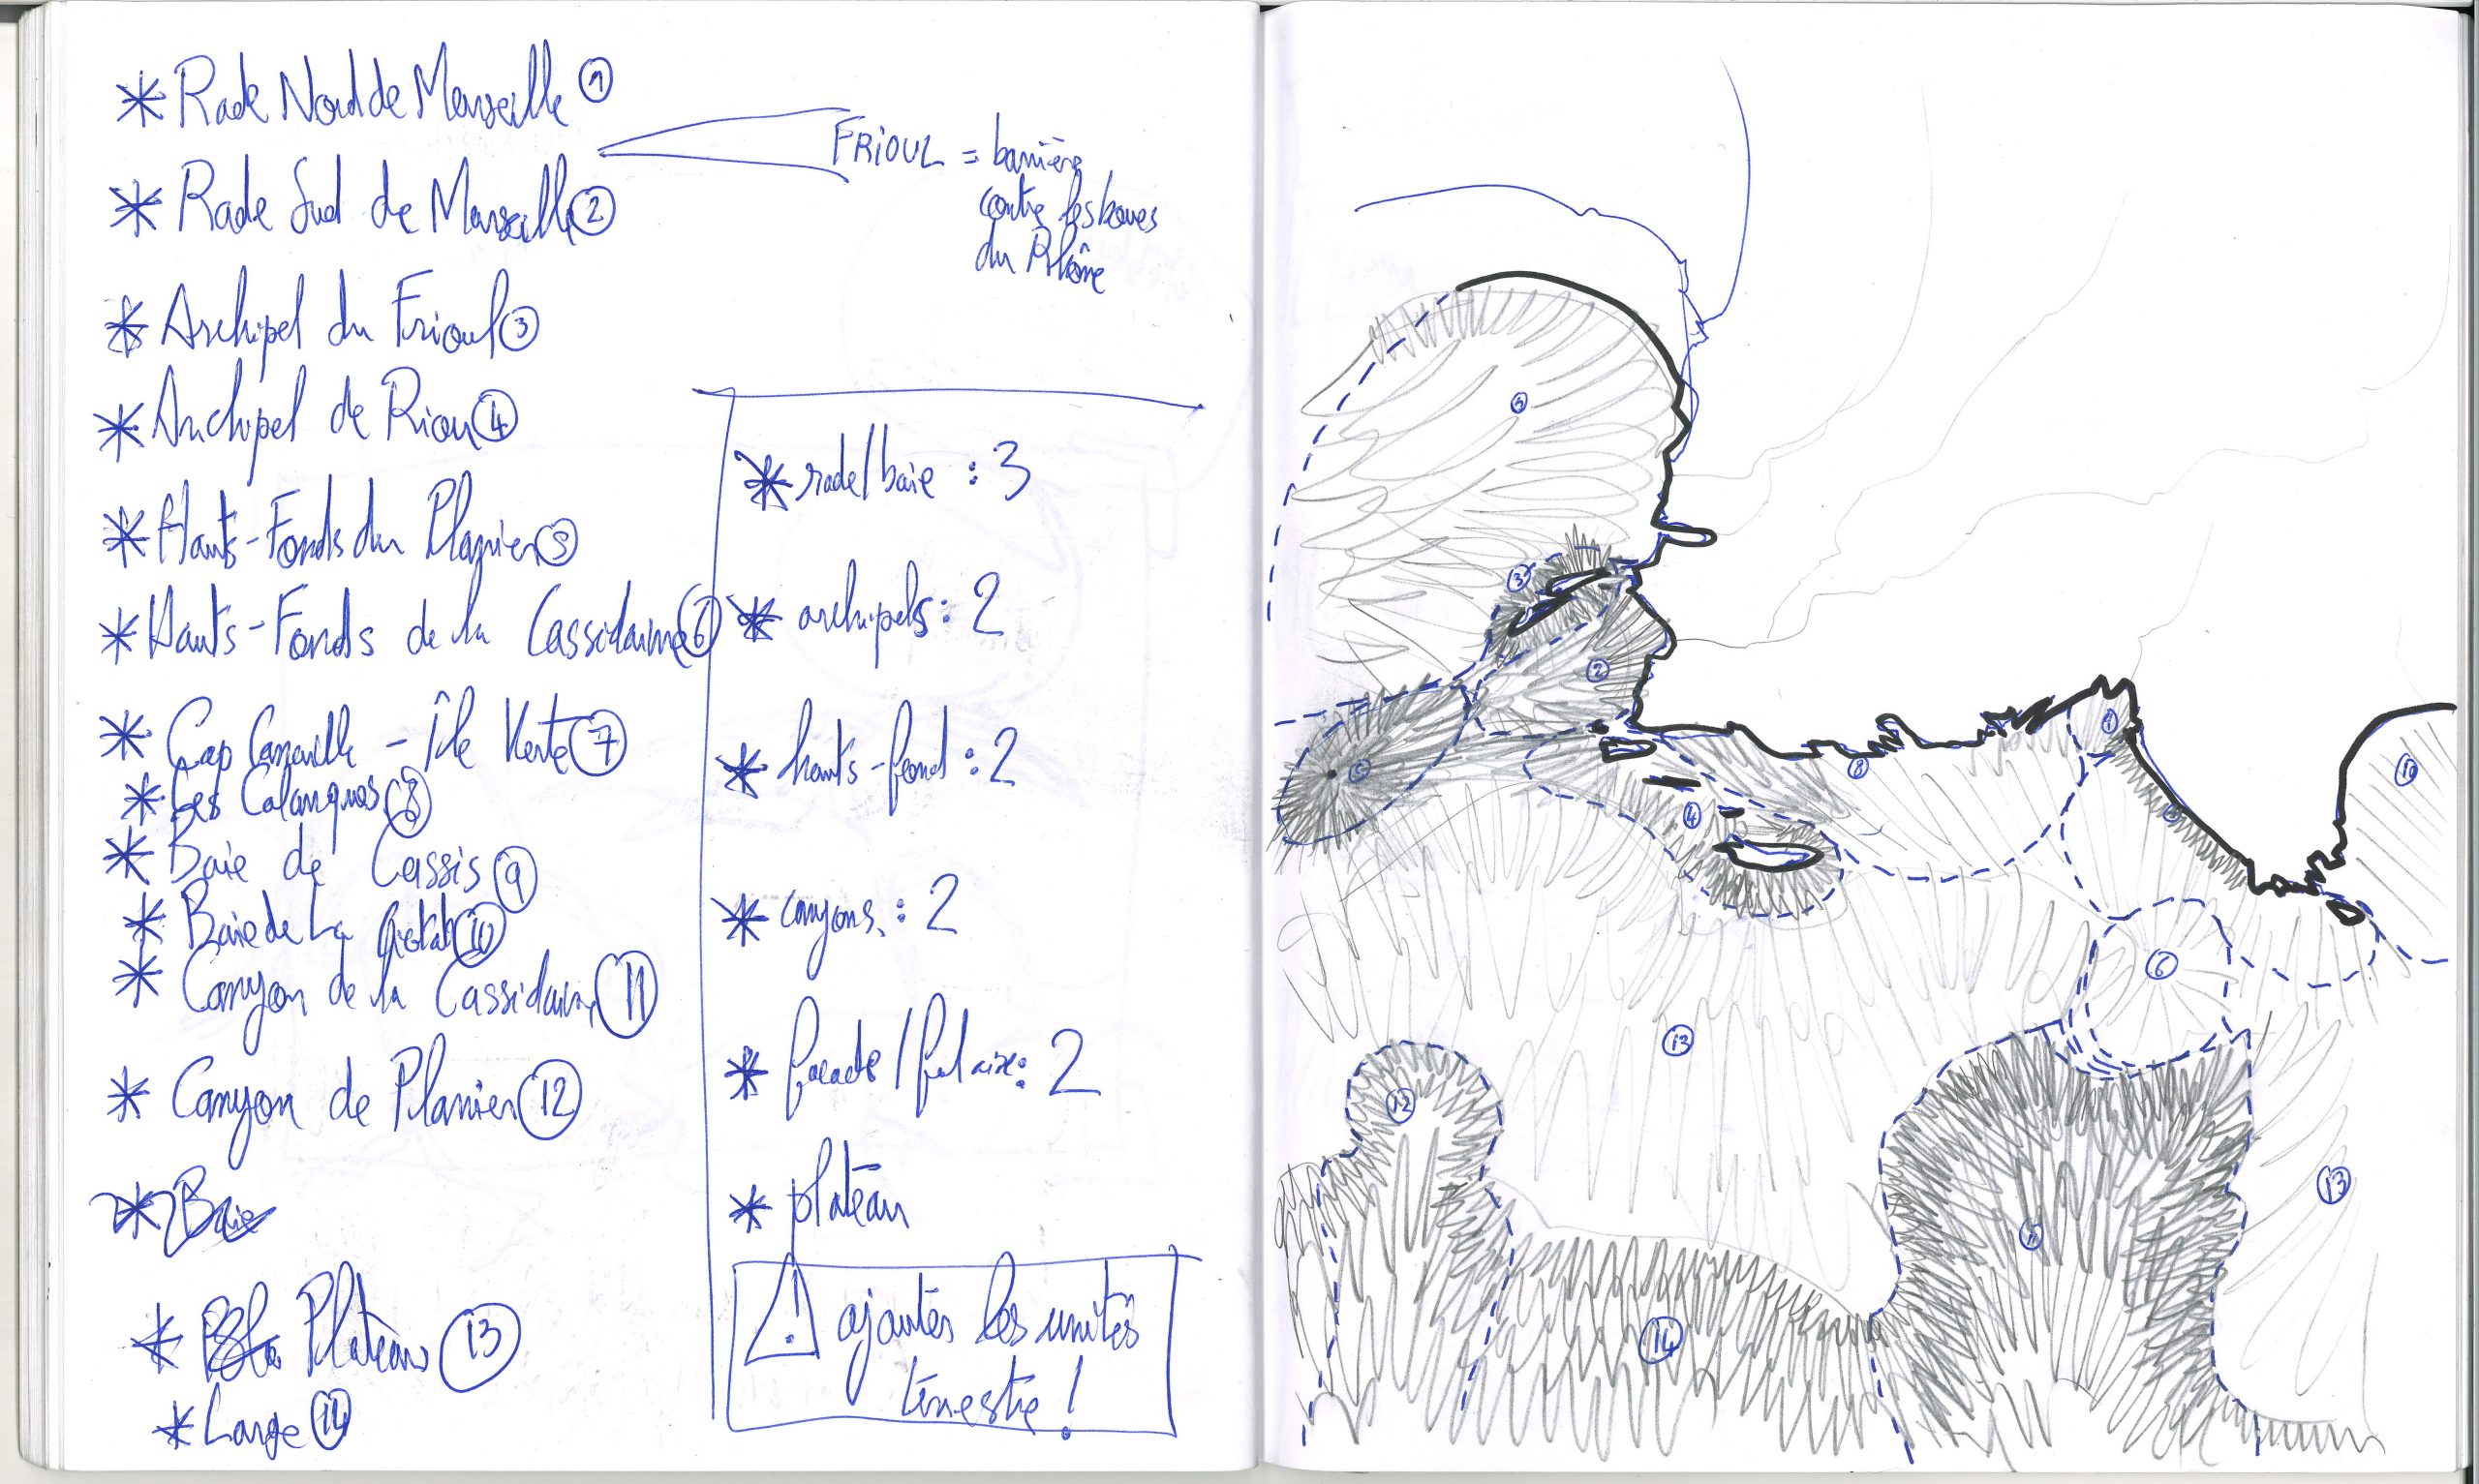 * Rade Nord de Marseille ①
* Rade Sud de Marseille ②
FRIOUL = barrière
contre les boues
du Rhône
* Archipel du Frioul ③
* Archipel de Riou ④
* Hauts-Fonds du Planier ⑤
* Hauts-Fonds de la Cassidaine ⑥
* Cap Canaille - Île Verte ⑦
* Les Calanques ⑧
* Baie de Cassis ⑨
* Baie de La Ciotat ⑩
* Canyon de la Cassidaine ⑪
* Canyon de Planier ⑫
* Baie
* Plateau ⑬
* Large ⑭
* rade/baie : 3
* archipels : 2
* hauts-fond : 2
* canyons : 2
* facade/falaise : 2
* plateau
! ajouter les unités
terrestre !
③
②
⑤
④
⑧
⑩
⑥
⑬
⑫
⑬
⑪
⑭